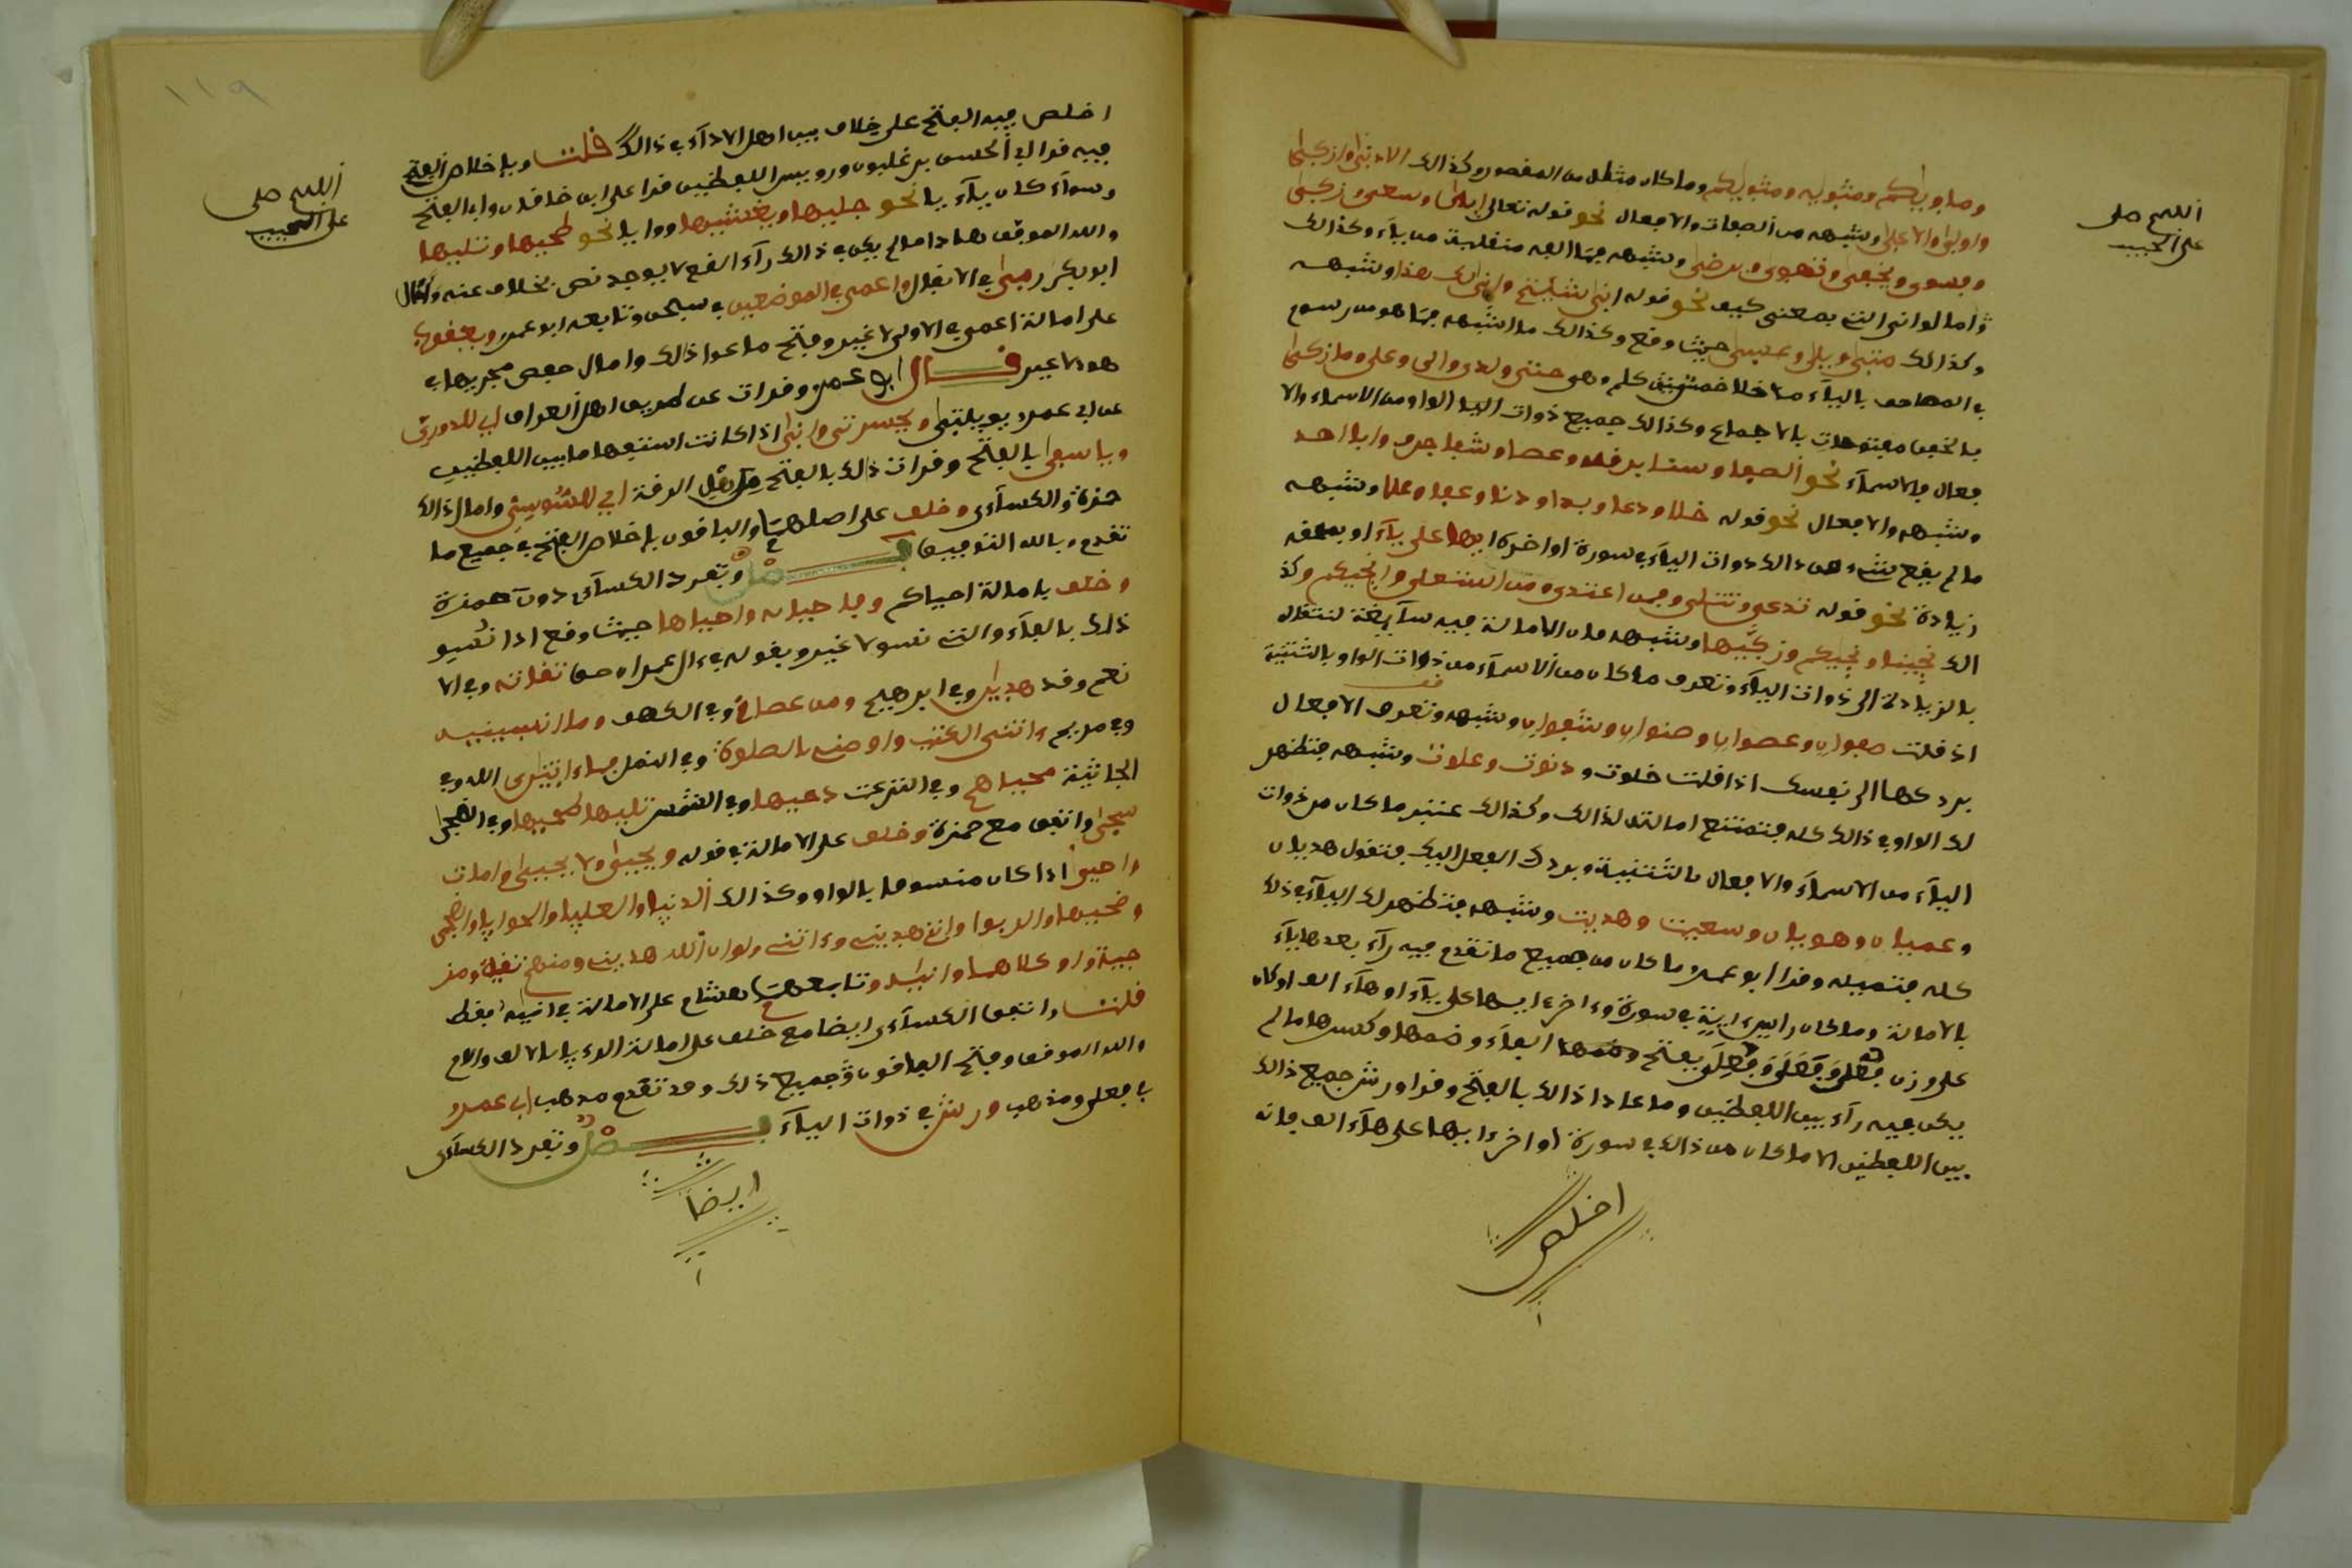 اللهم صل
على الحبيب
وماويكم ومثويه ومثويكم وما كان مثله من المقصور وكذالك الادنى وازكى
واولى والاعلى وشبهه من الصفات والافعال نحو قوله تعالى ابى وسعى وزكى
وفسوى ويخفى وتهوى ويرضى وشبهه مما الفه منقلبة من ياء وكذالك
وأمالوا انى التي بمعنى كيف نحو قوله انى شئتم وانى لك هذا وشبهه
وكذالك متى وبلى وعسى حيث وقع وكذالك ما اشبهه مما هو مرسوم
في المصاحف بالياء ما خلا خمس كلم وهي حتى ولدى والى وعلى وما زكى
فالخمس مفتوحات بالاجماع وكذالك جميع ذوات الواو من الاسماء والا
فعال فالاسماء نحو الصفا وسنا برقه وعصا وشفا جرف وابا احد
وشبهه والافعال نحو قوله خلا ودعا وبدا ودنا وعفا وعلا وشبهه
ما لم يقع شيء من ذالك ذوات الياء في سورة اواخر ايها على ياء او يلحقه
زيادة نحو قوله تدعى وتتلى وفمن اعتدى ومن استعلى وانجيكم وكذ
الك نجينا ونجيكم وزكيها وشبهه فان الامالة فيه سائغة لانتقاله
بالزيادة الى ذوات الياء وتعرف ما كان من الاسماء من ذوات الواو بالتثنية
اذ قلت صفوان وعصوان وصنوان وشفوان وشبهه وتعرف الافعال
بردكها الى نفسك اذا قلت خلوت ودنوت وعلوت وشبهه فتظهر
لك الواو في ذالك كله فتمتنع امالته لذالك وكذالك تعتبر ما كان من ذوات
الياء من الاسماء والافعال بالتثنية وبردك الفعل اليك فتقول هديان
وعميان وهويان وسعيت وهديت وشبهه فتظهر لك الياء في ذلك
كله فتميله وقرا ابو عمرو ما كان من جميع ما تقدم فيه راء بعدها ياء
بالامالة وما كان راس اية في سورة واخر ايها على ياء او هاء الف او كان
على وزن فعلى وفعلى وفعلى بفتح الفاء وضمها وكسرها ما لم
يكن فيه راء بين اللفظين وما عدا ذالك بالفتح وقرا ورش جميع ذالك
بين اللفظين الا ما كان من ذالك في سورة اواخر ايها على هاء الف فانه
اخلص
١١٩
اللهم صل
على الحبيب
اخلص فيه الفتح على خلاف بين اهل الاداء في ذالك قلت وباخلاص الفتح
فيه قرا لي الحسن بن غلبون وروي بين اللفظين قرا على ابن خاقان وابي الفتح
وسواء كان ياء يا نحو جليها ويغشيها وواويا نحو طحيها وتليها
والله الموفق هذا ما لم يكن في ذالك راء الفع لا يوجد نص بخلاف عنه وامال
ابو بكر رمى في الانفال واعمى في الموضعين في سبحن وتابعه ابو عمرو ويعقوب
على امالة اعمى في الاولى لا غير وفتح ما عدا ذالك وامال حفص مجريها في
هود لا غير قال ابو عمرو وقرات عن طريق اهل العراق اي للدوري
عن ابي عمرو يويلتى ويحسرتى وانى اذا كانت استفهاما بين اللفظين
وياسفى بالفتح وقرات ذلك بالفتح من طريق الرقة اي للسوسي وامال ذالك
حمزة والكسائي وخلف على اصلهما والباقون باخلاص الفتح في جميع ما
تقدم وبالله التوفيق فصل وتفرد الكسائي دون حمزة
وخلف بامالة احياكم وفاحيا به واحياها حيث وقع اذا نسق
ذلك بالفاء والتي نسق لا غير وبقوله في ال عمران حق تقاته وفي الا
نعم وقد هدين وفي ابرهيم ومن عصاني وفي الكهف وما انسينيه
وفي مريم اتيني الكتب واوصني بالصلوة وفي النمل فما اتين الله وفي
الجاثية محياهم وفي النزعت دحيها وفي الشمس تليها طحيها وفي الضحى
سجى واتفق مع حمزة وخلف على الامالة في قوله ويحيى ولا يحيى وامات
واحيى اذا كان منسوقا بالواو وكذالك الدنيا والعليا والحوايا والضحى
وضحيها والربوا وانني هديني وءاتني ولو ان الله هديني ومنهم تقية ومز
جية واو كلاهما وانيه وتابعهما هشام على الامالة في انيه فقط
قلت واتفق الكسائي ايضا مع خلف على امالة الرءيا بالالف واللام
والله الموفق وفتح الباقون جميع ذلك وقد تقدم مذهب ابي عمرو
في فعلى ومذهب ورش في ذوات الياء فصل وتفرد الكسائي
ايضا